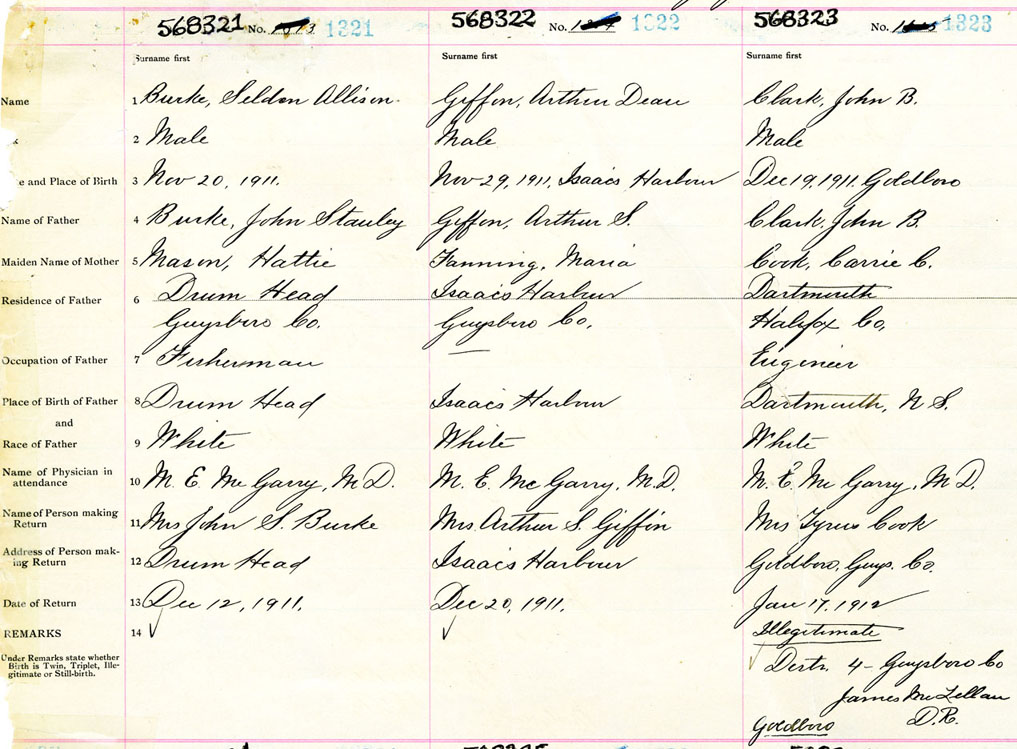 568321 No. 1321 568322 No. 1322 568323 No. 1323
Surname first Surname first Surname first
Name 1 Burke, Seldon Allison. Giffon, Arthur Dean Clark, John B.
2 Male Male Male
e and Place of Birth 3 Nov 20, 1911. Nov 29, 1911, Isaacs Harbour Dec 19, 1911. Goldboro
Name of Father 4 Burke, John Stanley Giffon, Arthur S. Clark, John B.
Maiden Name of Mother 5 Mason, Hattie Fanning, Maria Cook, Carrie C.
Residence of Father 6 Drum Head Isaacs Harbour Dartmouth
Guysboro Co. Guysboro Co. Halifax Co.
Occupation of Father 7 Fisherman — Engineer
Place of Birth of Father 8 Drum Head Isaacs Harbour Dartmouth, N.S.
and
Race of Father 9 White White White
Name of Physician in
attendance 10 M. E. McGarry, M.D. M. E. McGarry, M.D. M. E. McGarry, M.D.
Name of Person making
Return 11 Mrs John S. Burke Mrs Arthur S. Giffin Mrs Tyrus Cook
Address of Person mak-
ing Return 12 Drum Head Isaacs Harbour Goldboro, Guys. Co.
Date of Return 13 Dec 12, 1911. Dec 20, 1911. Jan 17, 1912
REMARKS 14 ✓ ✓ Illegitimate
Under Remarks state whether
Birth is Twin, Triplet, Ille-
gitimate or Still-birth.
✓ Distr. 4 - Guysboro Co
James McLellan
Goldboro D.R.